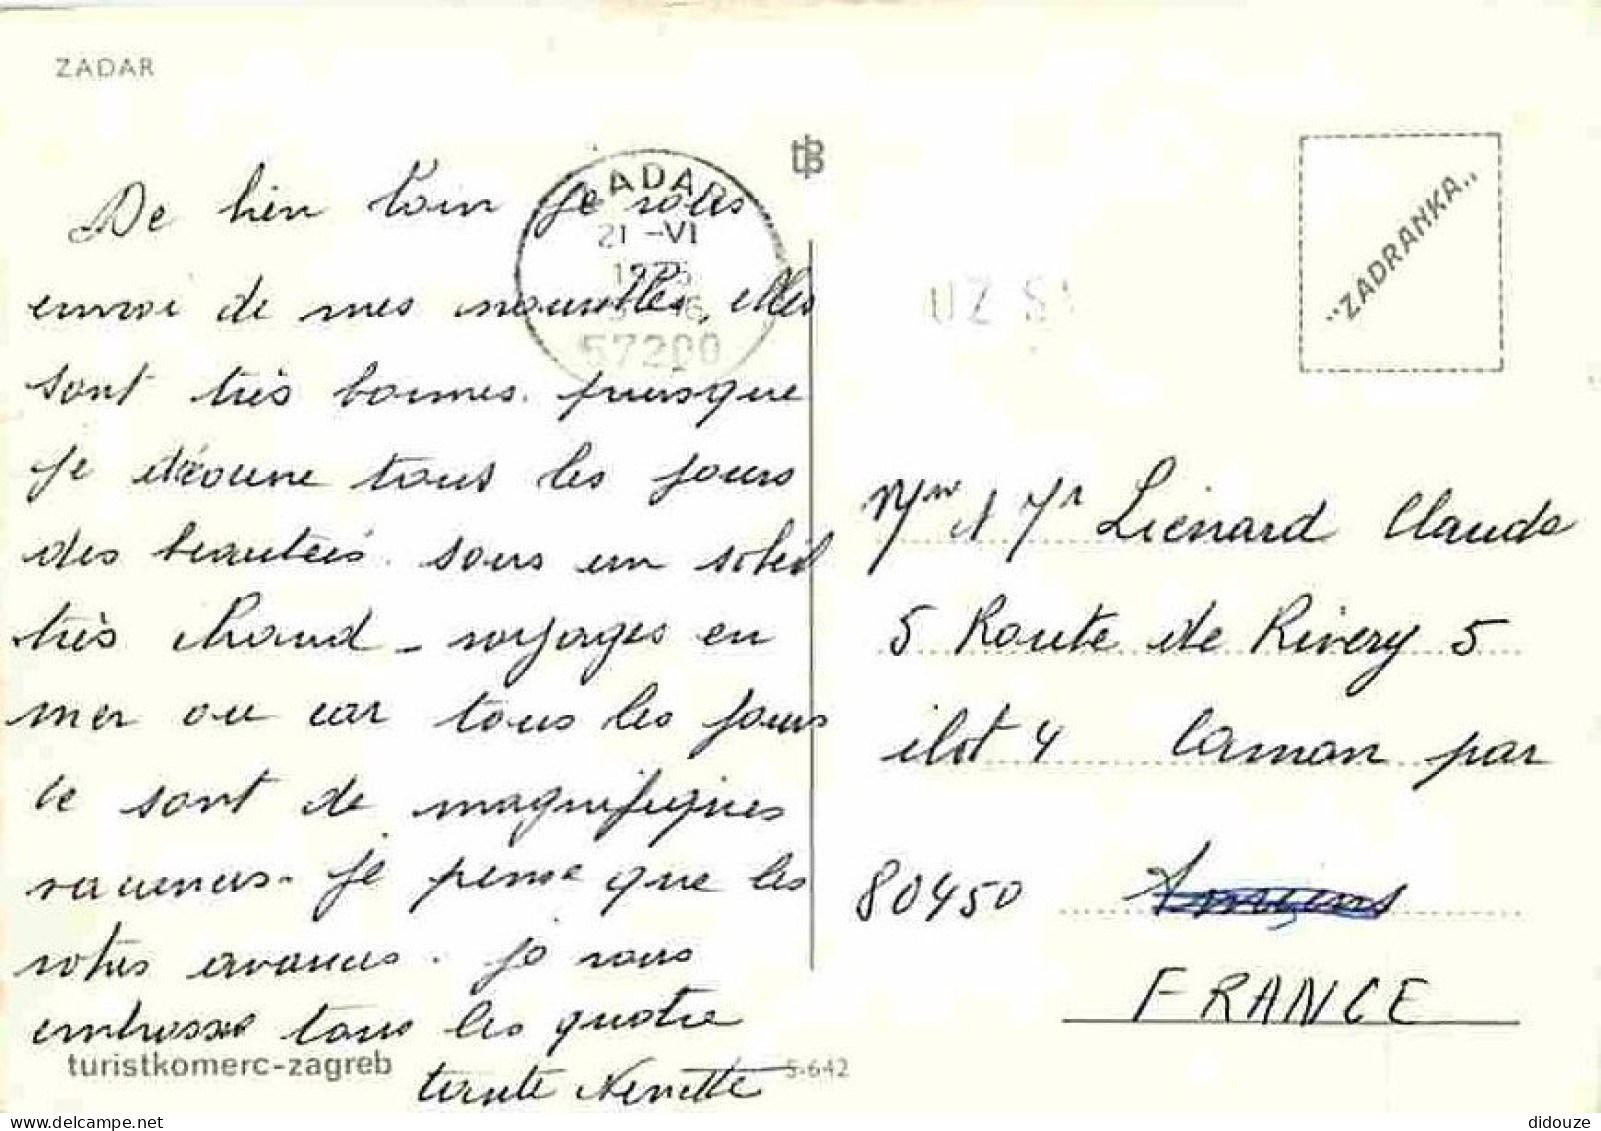 ZADAR
De bien loin je vous
envoi de mes nouvelles, elles
sont très bonnes. puisque
je découvre tous les jours
des beautées. sous un soleil
très chaud - voyages en
mer ou car tous les jours
ce sont de magnifiques
vacances. je pense que les
votres avances. je vous
embrasse tous les quatre
tante Nenette
turistkomerc-zagreb
5-642
ZADAR
21 -VI
57200
UZ
"ZADRANKA"
Mme et Mr Lienard Claude
5 Route de Rivery 5
ilot 4 Camon par
80450 Amiens
FRANCE
didouze